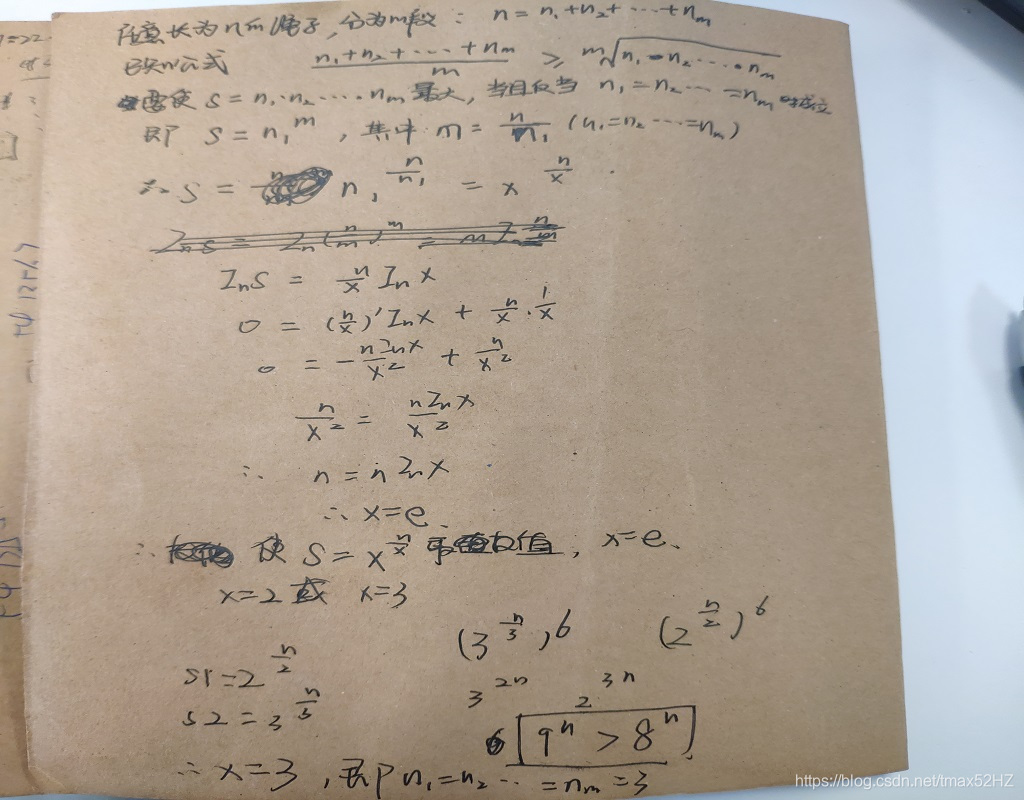 任意长为n的绳子，分为m段： n = n₁+n₂+ ⋯ +nₘ
已知公式 (n₁+n₂+ ⋯ +nₘ)/m ≥ ᵐ√(n₁·n₂⋯·nₘ)
要使 S = n₁·n₂⋯·nₘ 最大，当且仅当 n₁=n₂⋯=nₘ 时成立
即 S = n₁^m ，其中 m = n/n₁ (n₁=n₂⋯=nₘ)
∴ S = n₁^(n/n₁) = x^(n/x)
InS = n/x Inx
0 = (n/x)' Inx + n/x · 1/x
0 = -nInx/x² + n/x²
n/x² = nInx/x²
∴ n = n Inx
∴ x=e.
∴ 使 S = x^(n/x) 取值，x=e、
x=2 或 x=3
(3^(n/3))^6 (2^(n/2))^6
S1=2^(n/2)
S2=3^(n/3) 3^(2n) 2^(3n)
9ⁿ > 8ⁿ
∴ x=3 ，即 n₁=n₂⋯=nₘ=3
https://blog.csdn.net/tmax52HZ